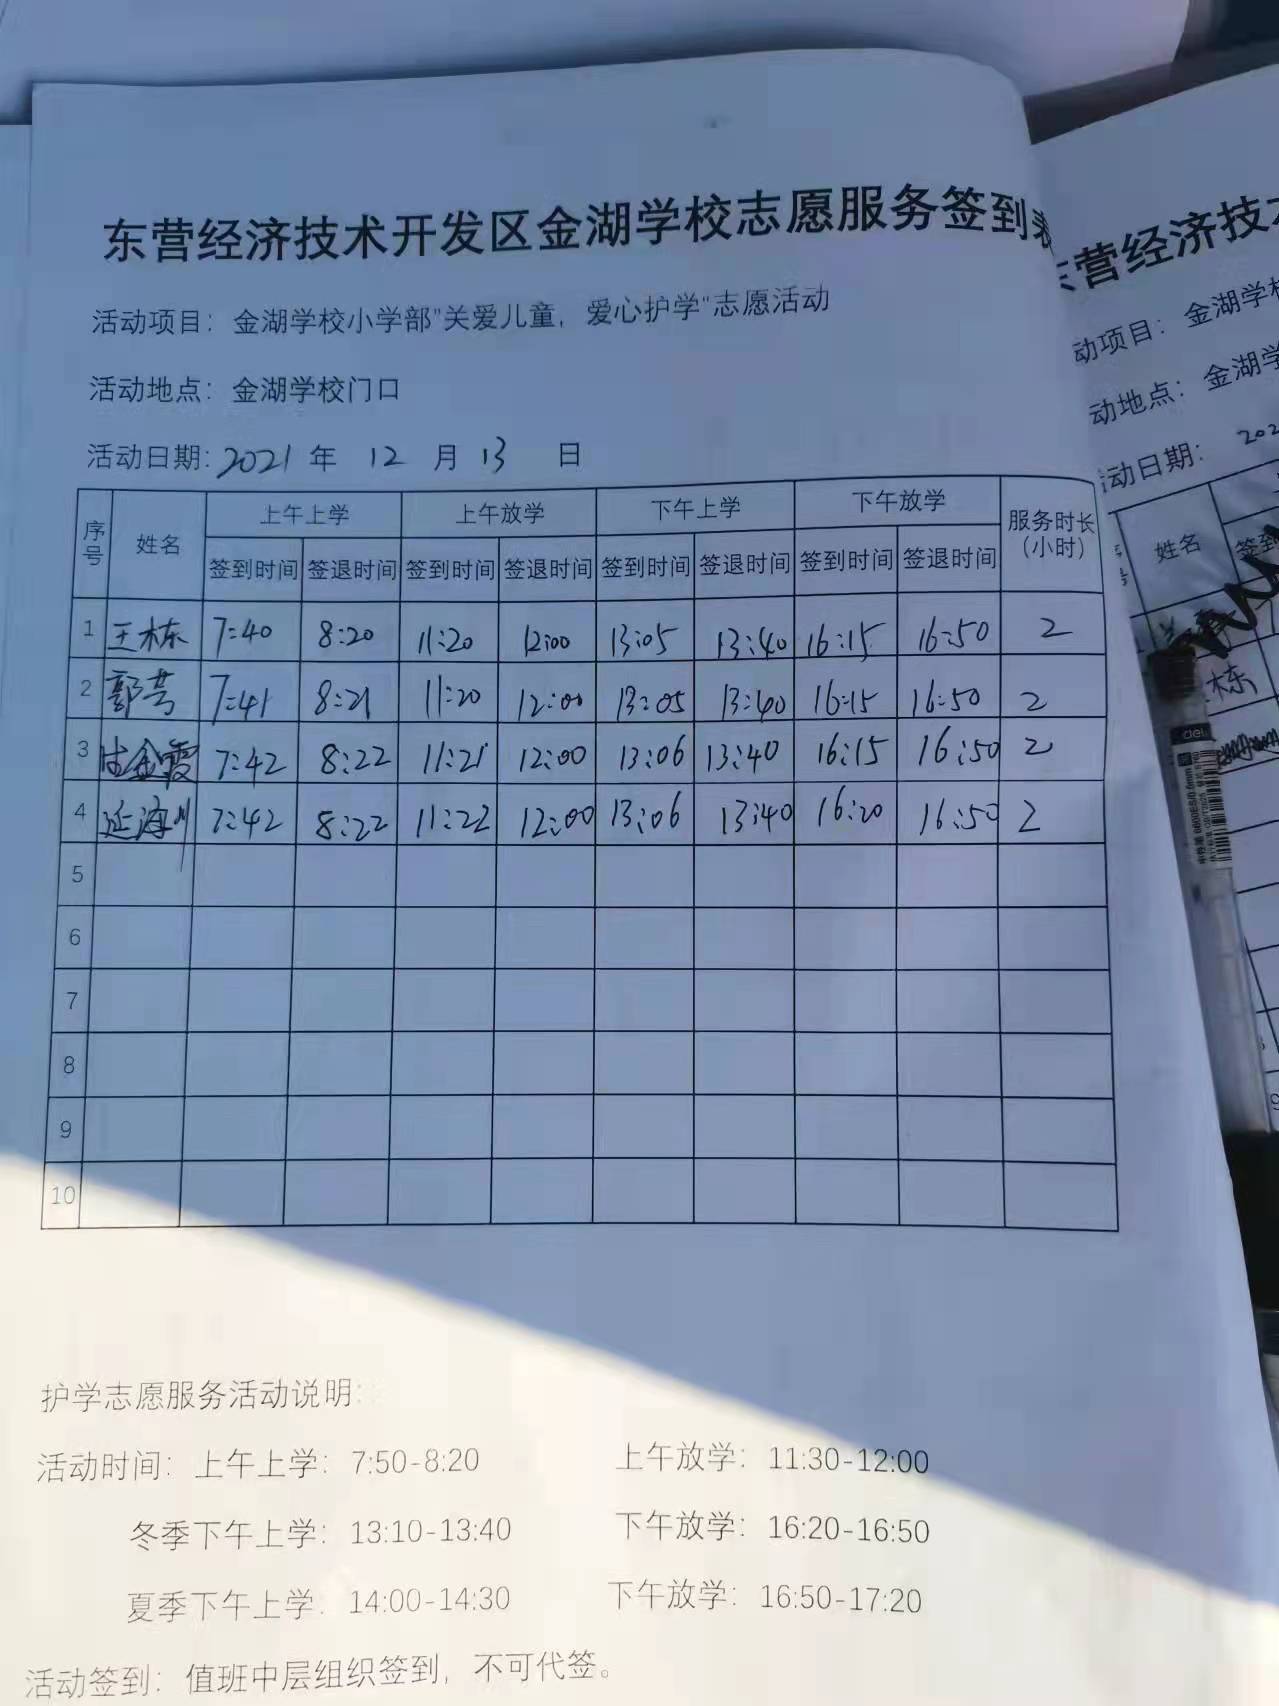 东营经济技术开发区金湖学校志愿服务签到表
活动项目：金湖学校小学部"关爱儿童，爱心护学"志愿活动
活动地点：金湖学校门口
活动日期：2021 年 12 月 13 日
序号 姓名 上午上学 上午放学 下午上学 下午放学 服务时长（小时）
签到时间 签退时间 签到时间 签退时间 签到时间 签退时间 签到时间 签退时间
1 王栋 7:40 8:20 11:20 12:00 13:05 13:40 16:15 16:50 2
2 郭芸 7:41 8:21 11:20 12:00 13:05 13:40 16:15 16:50 2
3 金霞 7:42 8:22 11:21 12:00 13:06 13:40 16:15 16:50 2
4 延海川 7:42 8:22 11:22 12:00 13:06 13:40 16:20 16:50 2
5
6
7
8
9
10
护学志愿服务活动说明：
活动时间：上午上学：7:50-8:20 上午放学：11:30-12:00
冬季下午上学：13:10-13:40 下午放学：16:20-16:50
夏季下午上学：14:00-14:30 下午放学：16:50-17:20
活动签到：值班中层组织签到，不可代签。
东营经济技
动项目：金湖学校
动地点：金湖学
活动日期：202
姓名 签到
栋
deli